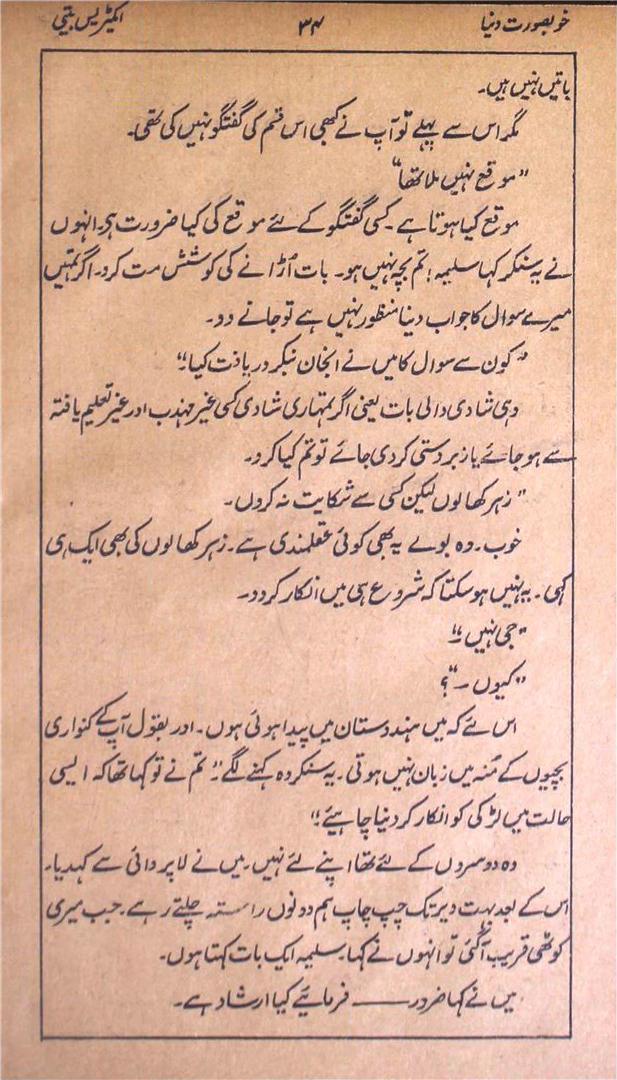 خوبصورت دنیا ۳۴ ایکٹریس بیتی
باتیں نہیں ہیں۔
مگر اس سے پہلے تو آپ نے کبھی اس قسم کی گفتگو نہیں کی تھی۔
"موقع نہیں ملا تھا"
موقع کیا ہوتا ہے۔ کسی گفتگو کے لئے موقع کی کیا ضرورت ہے۔ انہوں
نے یہ سنکر کہا سلیمہ! تم بچہ نہیں ہو۔ بات اُڑانے کی کوشش مت کرو۔ اگر تمہیں
میرے سوال کا جواب دینا منظور نہیں ہے تو جانے دو۔
"کون سے سوال کا میں نے انجان بنکر دریافت کیا"
وہی شادی والی بات یعنی اگر تمہاری شادی کسی غیر مہذب اور غیر تعلیم یافتہ
سے ہو جائے یا زبردستی کر دی جائے تو تم کیا کرو۔
"زہر کھا لوں لیکن کسی سے شکایت نہ کروں۔
خوب۔ وہ بولے یہ بھی کوئی عقلمندی ہے۔ زہر کھا لوں کی بھی ایک ہی
کہی۔ یہ نہیں ہو سکتا کہ شروع ہی میں انکار کر دو۔
"جی نہیں۔"
"کیوں۔"؟
اس لئے کہ میں ہندوستان میں پیدا ہوئی ہوں۔ اور بقول آپ کے کنواری
بچیوں کے مُنہ میں زبان نہیں ہوتی۔ یہ سنکر وہ کہنے لگے۔" تم نے تو کہا تھا کہ ایسی
حالت میں لڑکی کو انکار کر دینا چاہیئے"
وہ دوسروں کے لئے تھا اپنے لئے نہیں۔ میں نے لاپروائی سے کہدیا۔
اس کے بعد بہت دیر تک چپ چاپ ہم دونوں راستہ چلتے رہے۔ جب میری
کوٹھی قریب آگئی تو انہوں نے کہا۔ سلیمہ ایک بات کہتا ہوں۔
میں نے کہا ضرور —— فرمائیے کیا ارشاد ہے۔